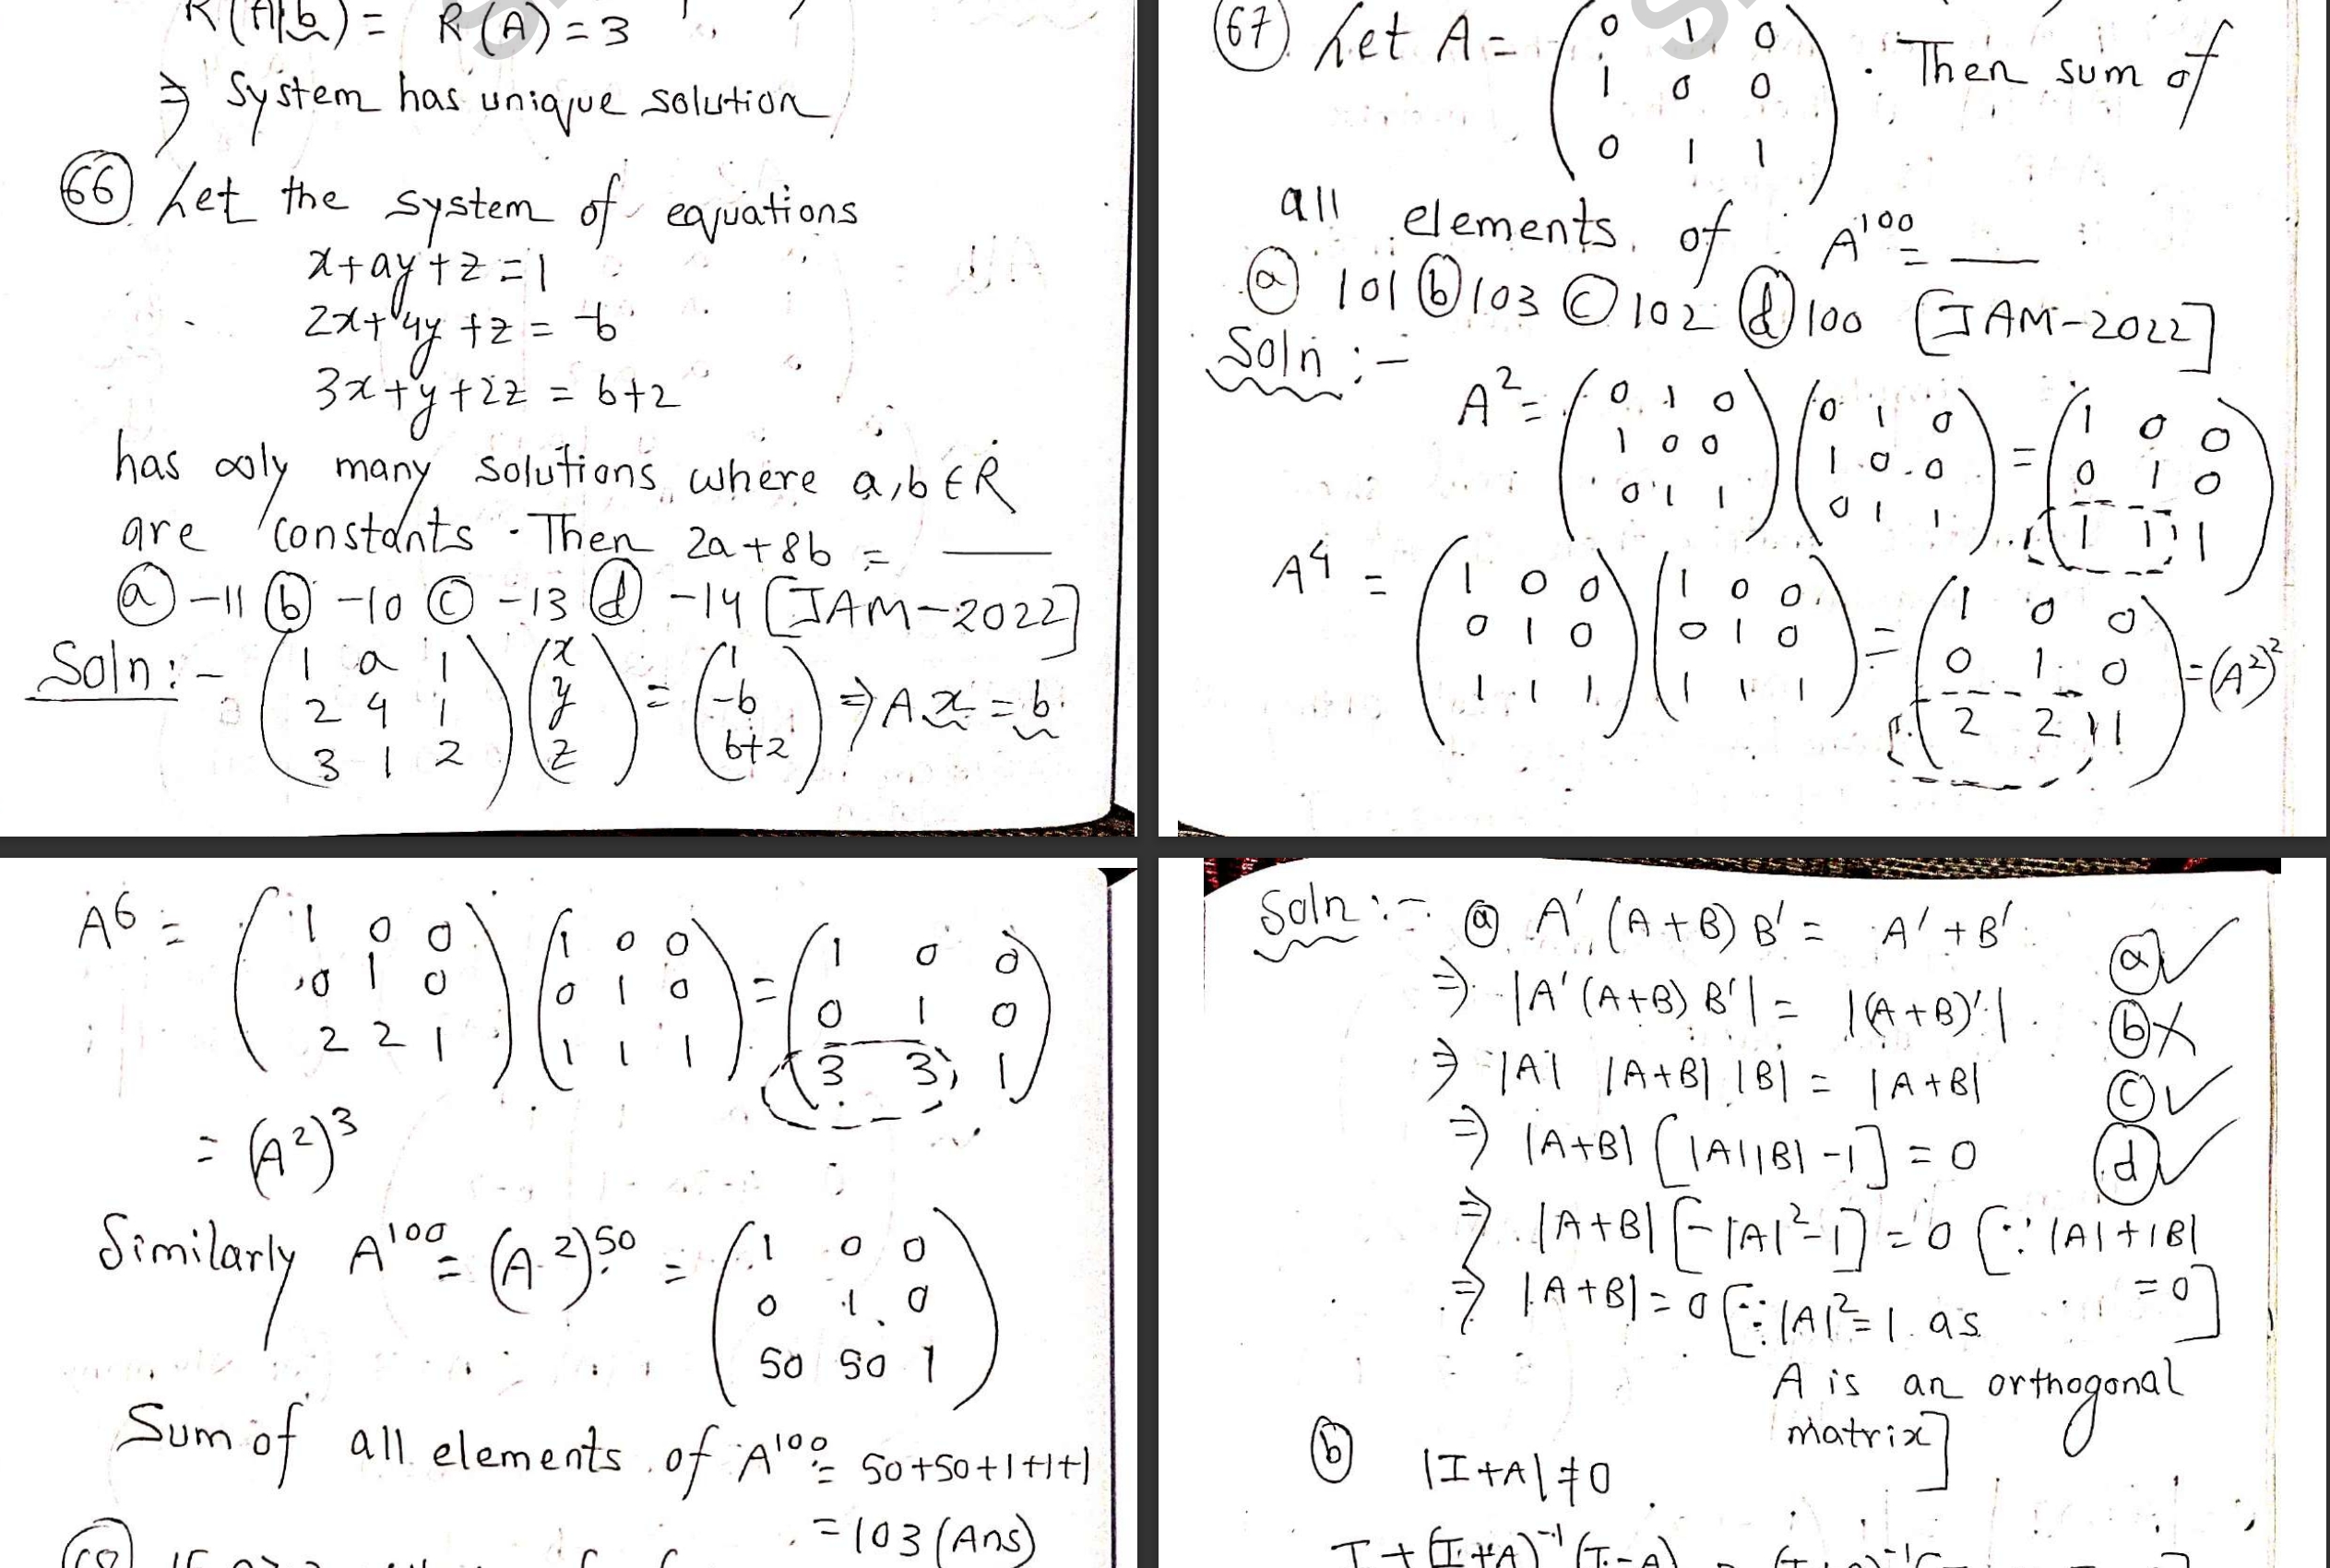 R(A|b) = R(A) = 3
⇒ System has unique solution
66 Let the system of equations
x+ay+z=1
2x+4y+z = -b
3x+y+2z = b+2
has ∞ly many solutions, where a,b∈R
are constants. Then 2a+8b = ___
ⓐ -11 ⓑ -10 ⓒ -13 ⓓ -14 [JAM-2022]
Soln:- (1 a 1; 2 4 1; 3 1 2) (x; y; z) = (1; -b; b+2) ⇒ A x = b
67 Let A = (0 1 0; 1 0 0; 0 1 1). Then sum of
all elements of A¹⁰⁰ = ___
ⓐ 101 ⓑ 103 ⓒ 102 ⓓ 100 [JAM-2022]
Soln:-
A² = (0 1 0; 1 0 0; 0 1 1) (0 1 0; 1 0 0; 0 1 1) = (1 0 0; 0 1 0; 1 1 1)
A⁴ = (1 0 0; 0 1 0; 1 1 1) (1 0 0; 0 1 0; 1 1 1) = (1 0 0; 0 1 0; 2 2 1) = (A²)²
A⁶ = (1 0 0; 0 1 0; 2 2 1) (1 0 0; 0 1 0; 1 1 1) = (1 0 0; 0 1 0; 3 3 1)
= (A²)³
Similarly A¹⁰⁰ = (A²)⁵⁰ = (1 0 0; 0 1 0; 50 50 1)
Sum of all elements of A¹⁰⁰ = 50+50+1+1+1
= 103 (Ans)
Soln:- ⓐ A'(A+B)B' = A'+B' ⓐ✓
⇒ |A'(A+B)B'| = |(A+B)'| ⓑ✗
⇒ |A| |A+B| |B| = |A+B| ⓒ✓
⇒ |A+B| [|A||B|-1] = 0 ⓓ✓
⇒ |A+B| [-|A|²-1] = 0 [∵ |A|+|B|
= 0]
⇒ |A+B| = 0 [∵ |A|²=1 as
A is an orthogonal
matrix]
ⓑ |I+A| ≠ 0